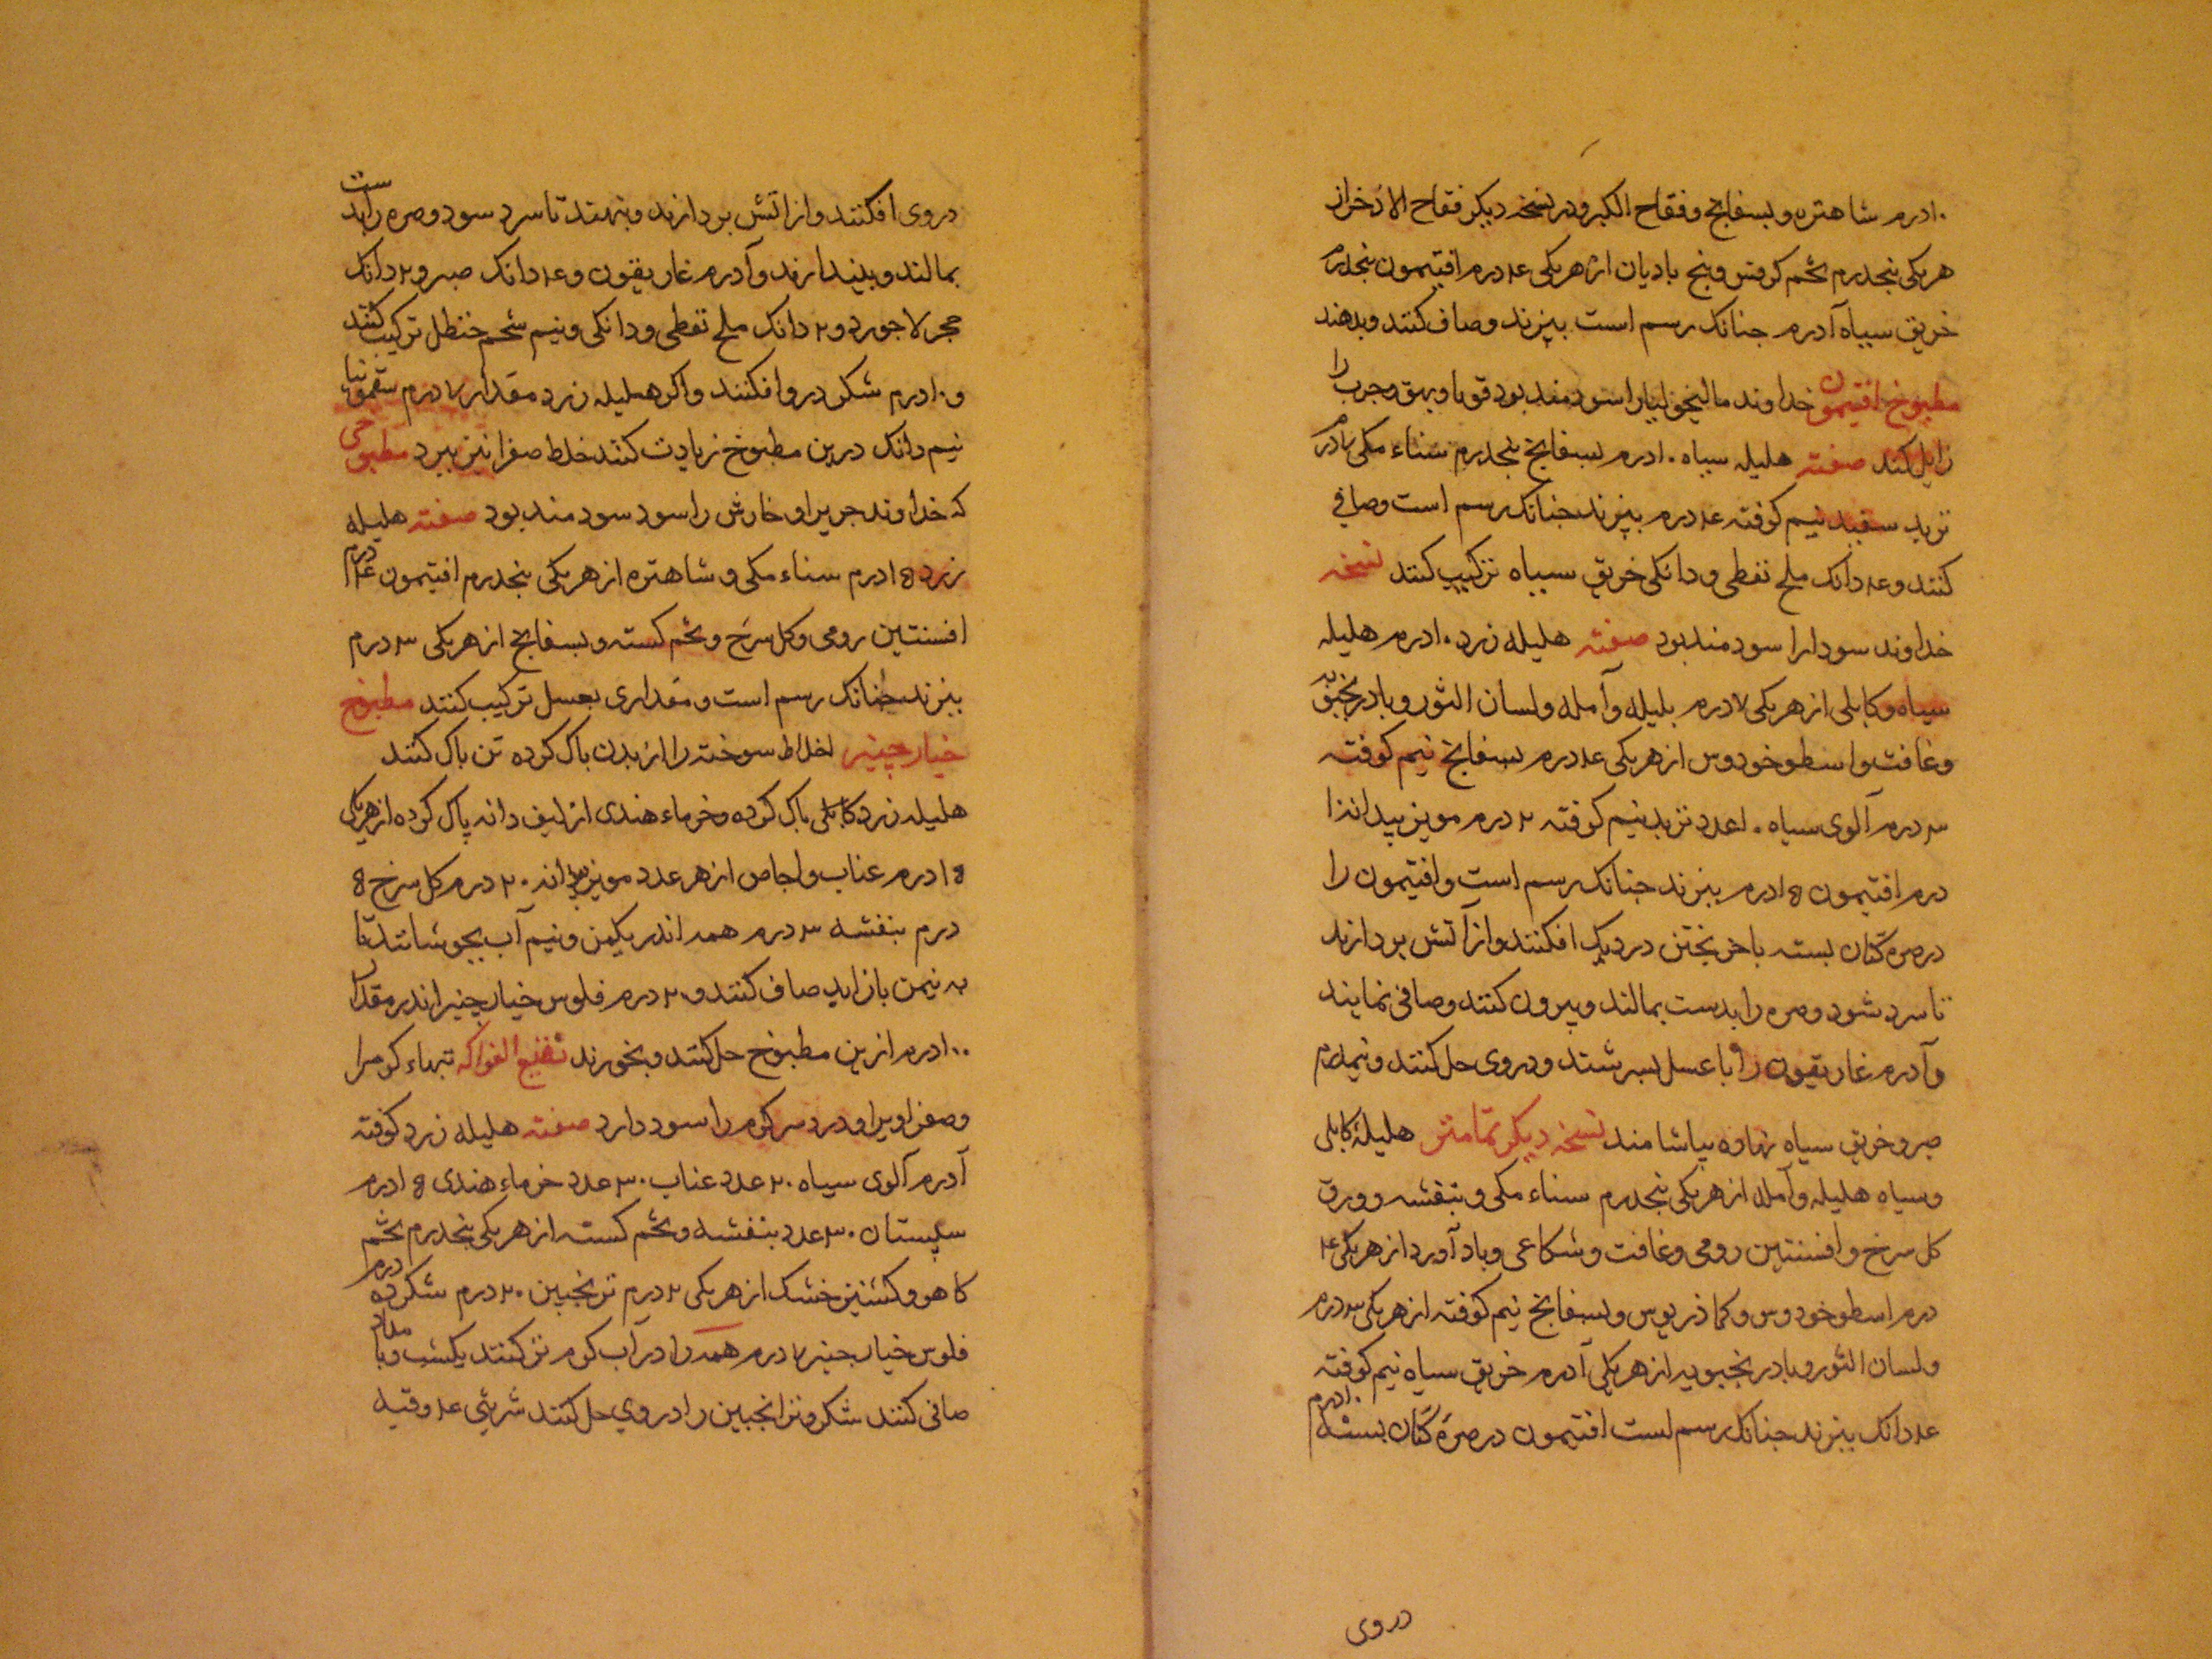 ۱۰درم شاهتره و بسفایج و فقاح الکبر و در نسخه دیکر فقاح الاذخر از
هریکی پنجدرم تخم کرفس و بیخ بادیان از هریکی ۴درم افتیمون پنجدرم
خربق سیاه آدرم جنانک رسم است بپزند و صاف کنند و بدهند
مطبوخ افتیمون خداوند مالیخولیا را سود مند بود قوبا و بهق و جرب را
زایل کند صفته هلیله سیاه ۱۰درم بسفایج پنجدرم سناء مکی ۷درم
تربد سفید نیم کوفته ۴درم بپزند جنانک رسم است و صافی
کنند و ۴دانک ملح نفطی و دانکی خربق سیاه ترکیب کنند نسخه
خداوند سودا را سود مند بود صفته هلیله زرد ۱۰درم هلیله
سیاه و کابلی از هریکی ۷درم بلیله و آمله و لسان الثور و بادرنجبویه
و غافت و اسطوخودوس از هریکی ۴درم بسفایج نیم کوفته
۳درم آلوی سیاه ۱۰عدد تربد نیم کوفته ۲درم مویز بیدانه
درم افتیمون ۱۵درم بپزند جنانک رسم است و افتیمون را
در صره کتان بسته باخر پختن در دیک افکنند و از آتش بردارند
تا سرد شود و صره را بدست بمالند و بیرون کنند و صافی نمایند
و آدرم غاریقون را با عسل بسرشند و دروی حل کنند و نیمدرم
صبر و خربق سیاه نهاده بیاشامند نسخه دیکر تمامتر هلیلهٔ کابلی
و سیاه هلیله و آمله از هریکی پنجدرم سناء مکی و بنفشه و ورق
کل سرخ و افسنتین رومی و غافت و شکاعی و باد آورد از هریکی ۴
درم اسطوخودوس و کماذریوس و بسفایج نیم کوفته از هریکی ۳درم
و لسان الثور و بادرنجبویه از هریکی آدرم خربق سیاه نیم کوفته
۴دانک بپزند جنانک رسم است افتیمون ۱۰درم در صرهٔ کتان بسته
دروی
دروی افکنند و از آتش بردارند و بنهند تا سرد سود و صره را بدست
بمالند و بیندازند و آدرم غاریقون و ۴دانک صبر و ۲دانک
حجر لاجورد و ۲دانک ملح نفطی و دانکی و نیم شحم حنظل ترکیب کنند
و ۱۰درم شکر در و افکنند و اکر هلیله زرد مقدار ۷درم سقمونیا
نیم دانک درین مطبوخ زیادت کنند خلط صفرا نیز ببرد مطبوخی
که خداوند جرب را و خارش را سود سود مند بود صفته هلیله
زرد ۱۵درم سناء مکی و شاهتره از هریکی پنجدرم افتیمون ۴درم
افسنتین رومی و کل سرخ و تخم کسنه و بسفایج از هریکی ۳درم
بپزند جنانک رسم است و مقداری بعسل ترکیب کنند مطبوخ
خیار چنبر اخلاط سوخته را از بدن باک کرده تن باک کنند
هلیله زرد کابلی باک کرده و خرماء هندی از لیف دانه پاک کرده از هریکی
۱۵درم عناب و اجاص از هر عدد مویز دانه ۲۰درم کل سرخ ۵
درم بنفشه ۳درم همه اندر یکمن و نیم آب بجوشانند تا
به نیمن باز اید صاف کنند و ۲۰درم فلوس خیار چنبر اندر مقدار
۱۰۰درم ازین مطبوخ حل کنند و بخورند نقیع الفواکه تبهاء کرم را
و صفرا ویرا و درد سر کرم را سود دارد صفته هلیله زرد کوفته
آدرم آلوی سیاه ۲۰عدد عناب ۳۰عدد خرماء هندی ۱۵درم
سپستان ۳۰عدد بنفشه و تخم کسنه از هریکی پنجدرم تخم
کاهو و کشنیز خشک از هریکی ۲درم ترنجبین ۲۰درم شکر ده درم
فلوس خیار چنبر ۷درم همه را در آب کرم تر کنند یکشب و بامداد
صافی کنند شکر و ترانجبین را دروی حل کنند شربتی ۴وقیه